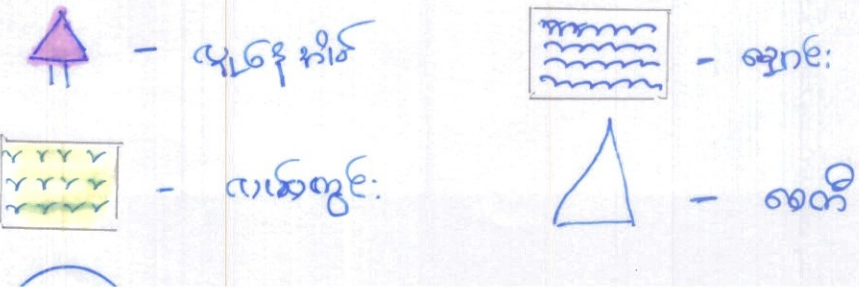 လူနေအိမ် - ချောင်း
လယ်ကွင်း - စေတီ